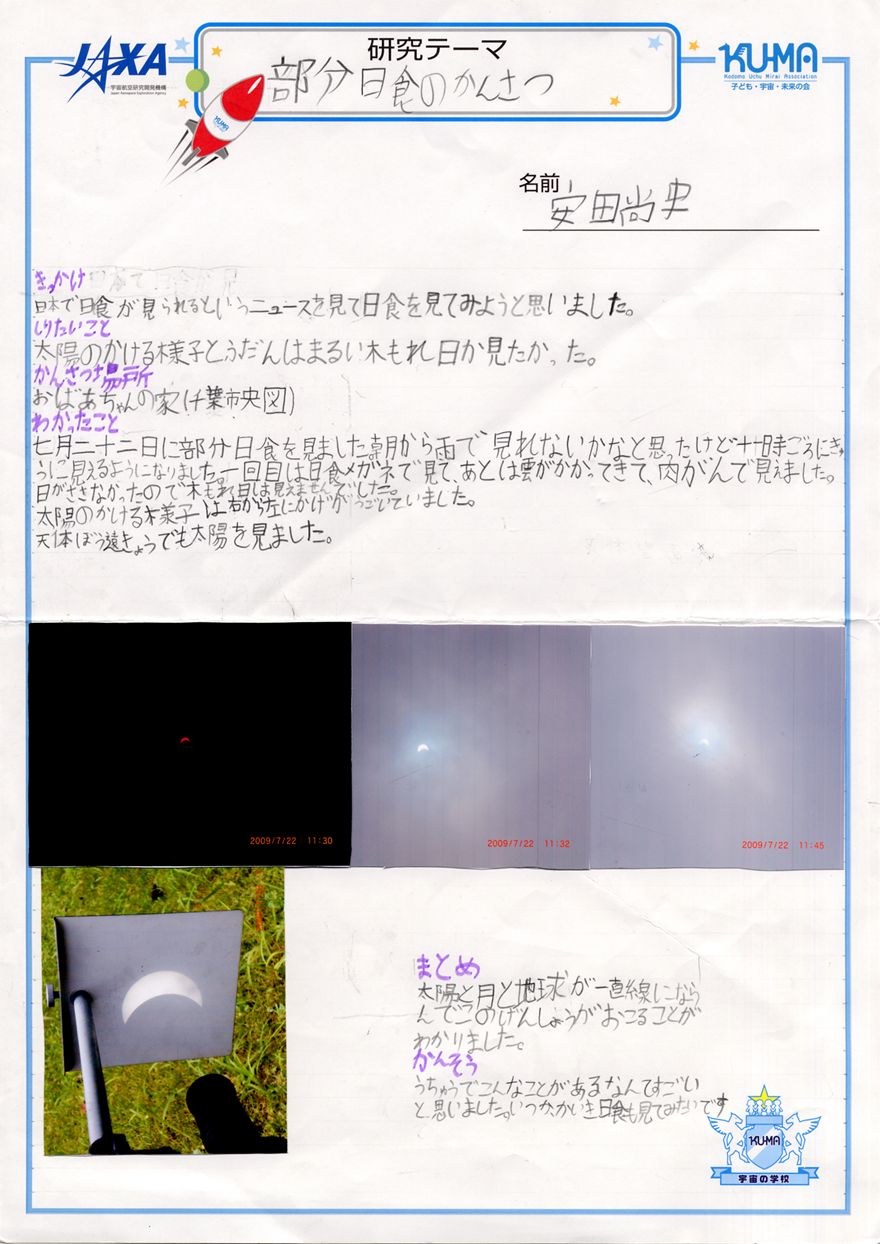 JAXA
宇宙航空研究開発機構
Japan Aerospace Exploration Agency
研究テーマ
部分日食のかんさつ
KUMA
Kodomo Uchu Mirai Association
子ども・宇宙・未来の会
KUMA
名前 安田尚史
きっかけ
日本で日食が見られるというニュースを見て日食を見てみようと思いました。
しりたいこと
太陽のかける様子とふだんはまるい木もれ日か見たかった。
かんさつ場所
おばあちゃんの家(千葉市央図)
わかったこと
七月二十二日に部分日食を見ました朝から雨で見れないかなと思ったけど十十時ごろにきゅ
うに見えるようになりました。一回目は日食メガネで見て、あとは雲がかかってきて、肉がんで見えました。
日がささなかったので木もれ日は見えませんでした。
太陽のかける様子は右から左にかげがうごいていました。
天体ぼう遠きょうでも太陽を見ました。
2009/7/22 11:30
2009/7/22 11:32
2009/7/22 11:45
まとめ
太陽と月と地球が一直線になら
んでこのげんしょうがおこることが
わかりました。
かんそう
うちゅうでこんなことがあるなんてすごい
と思いました。いつかかいき日食も見てみたいです
KU-MA
宇宙の学校